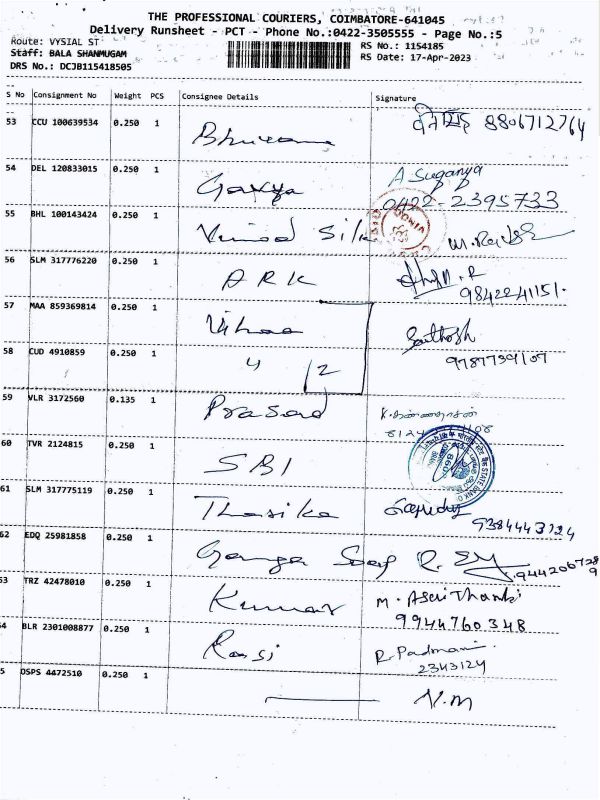 THE PROFESSIONAL COURIERS, COIMBATORE-641045
Delivery Runsheet - PCT - Phone No.:0422-3505555 - Page No.:5
Route: VYSIAL ST
RS No.: 1154185
Staff: BALA SHANMUGAM
RS Date: 17-Apr-2023
DRS No.: DCJB115418505
S No Consignment No Weight PCS Consignee Details Signature
53 CCU 100639534 0.250 1 8806712764
54 DEL 120833015 0.250 1 A Suganya
0422-2395733
55 BHL 100143424 0.250 1 Vinod Silk
56 SLM 317776220 0.250 1 ARK
9842241151.
57 MAA 859369814 0.250 1 Santhosh
9787759107
58 CUD 4910859 0.250 1 4 /2
59 VLR 3172560 0.135 1 Prasad
60 TVR 2124815 0.250 1 SBI
STATE BANK O
61 SLM 317775119 0.250 1 Thasika
9384443724
62 EDQ 25981858 0.250 1 Ganga Soap
63 TRZ 42478010 0.250 1 Kumar
9944760348
64 BLR 2301008877 0.250 1 Rasi R. Padmani
2343124
5 OSPS 4472510 0.250 1 V.M